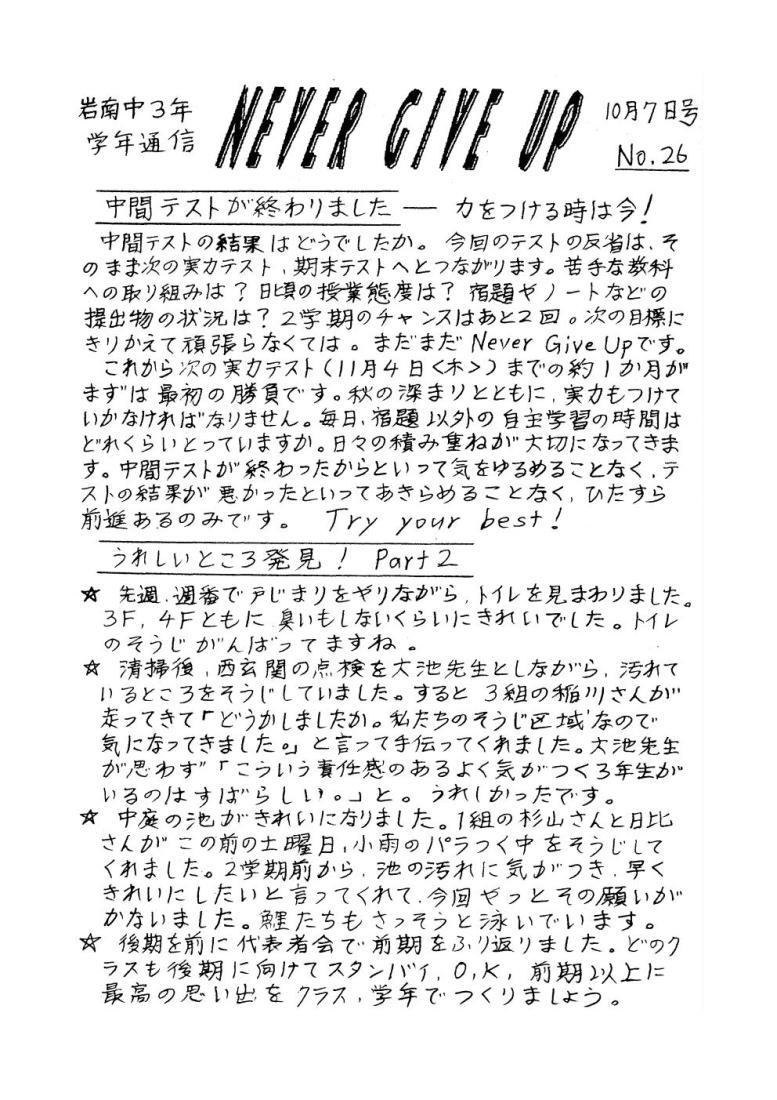 岩南中3年
学年通信
NEVER GIVE UP
10月7日号
No.26
中間テストが終わりました ― 力をつける時は今!
中間テストの結果はどうでしたか。今回のテストの反省は、そ
のまま次の実力テスト、期末テストへとつながります。苦手な教科
への取り組みは?日頃の授業態度は?宿題やノートなどの
提出物の状況は?2学期のチャンスはあと2回。次の目標に
きりかえて頑張らなくては。まだまだNever Give Upです。
これから次の実力テスト(11月4日<木>)までの約1か月が
まずは最初の勝負です。秋の深まりとともに、実力もつけて
いかなければなりません。毎日、宿題以外の自主学習の時間は
どれくらいとっていますか。日々の積み重ねが大切になってきま
す。中間テストが終わったからといって気をゆるめることなく、テ
ストの結果が悪かったといってあきらめることなく、ひたすら
前進あるのみです。 Try your best!
うれしいところ発見! Part2
☆ 先週、週番で戸じまりをやりながら、トイレを見まわりました。
3F,4Fともに臭いもしないくらいにきれいでした。トイレ
のそうじがんばってますね。
☆ 清掃後、西玄関の点検を大池先生としながら、汚れて
いるところをそうじしていました。すると3組の稲川さんが
走ってきて「どうかしましたか。私たちのそうじ区域なので
気になってきました。」と言って手伝ってくれました。大池先生
が思わず「こういう責任感のあるよく気がつく3年生が
いるのはすばらしい。」と。うれしかったです。
☆ 中庭の池がきれいになりました。1組の杉山さんと日比
さんがこの前の土曜日、小雨のパラつく中をそうじして
くれました。2学期前から、池の汚れに気がつき、早く
きれいにしたいと言ってくれて、今回やっとその願いが
かないました。鯉たちもさっそうと泳いでいます。
☆ 後期を前に代表者会で前期をふり返りました。どのク
ラスも後期に向けてスタンバイ,O,K,前期以上に
最高の思い出をクラス、学年でつくりましょう。